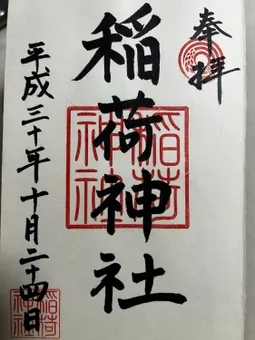 奉拝
稲荷神社
平成三十年十月二十四日
稲荷
神社
稲荷
神社